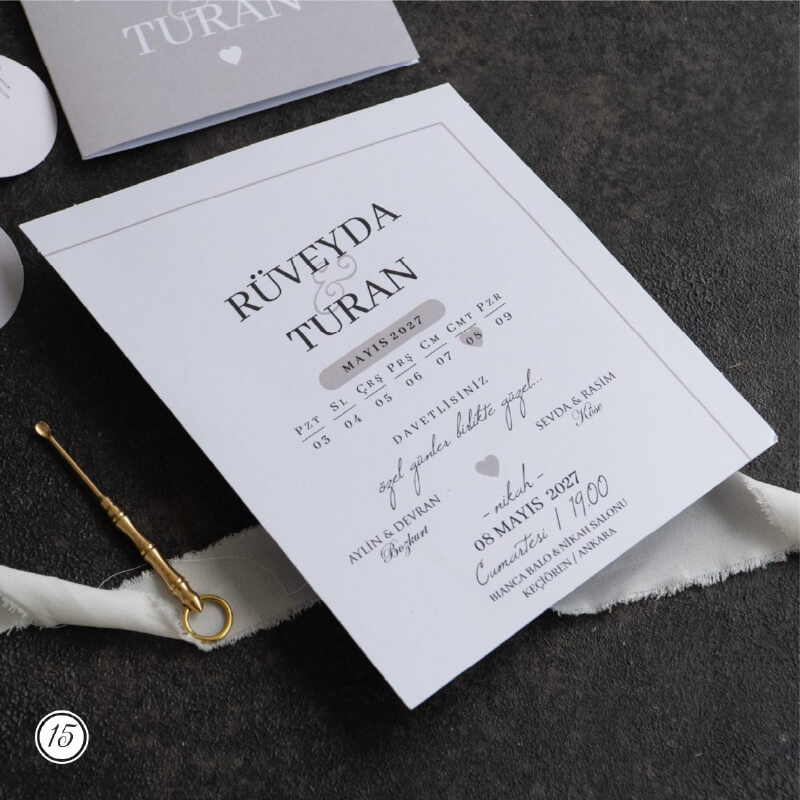 &
TURAN
RÜVEYDA
&
TURAN
MAYIS 2027
PZT SL ÇRŞ PRŞ CM CMT PZR
03 04 05 06 07 08 09
DAVETLİSİNİZ
özel günler birlikte güzel...
SEVDA & RASİM
Köse
AYLİN & DEVRAN
Bozkurt
- nikah -
08 MAYIS 2027
Cumartesi | 19.00
BIANCA BALO & NİKAH SALONU
KEÇİÖREN / ANKARA
15